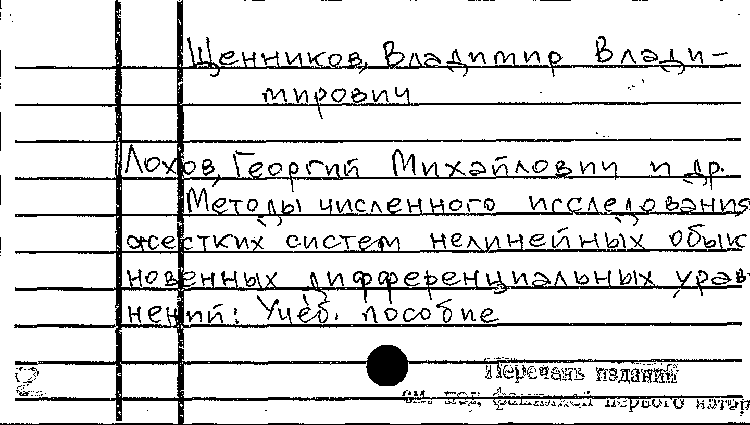 Щенников, Владимир Влади-
мирович
Лохов, Георгий Михайлович и др.
Методы численного исследования
жестких систем нелинейных обык
новенных дифференциальных урав
нений: Учеб. пособие
2
Перечень изданий
см. под фамилией первого автор